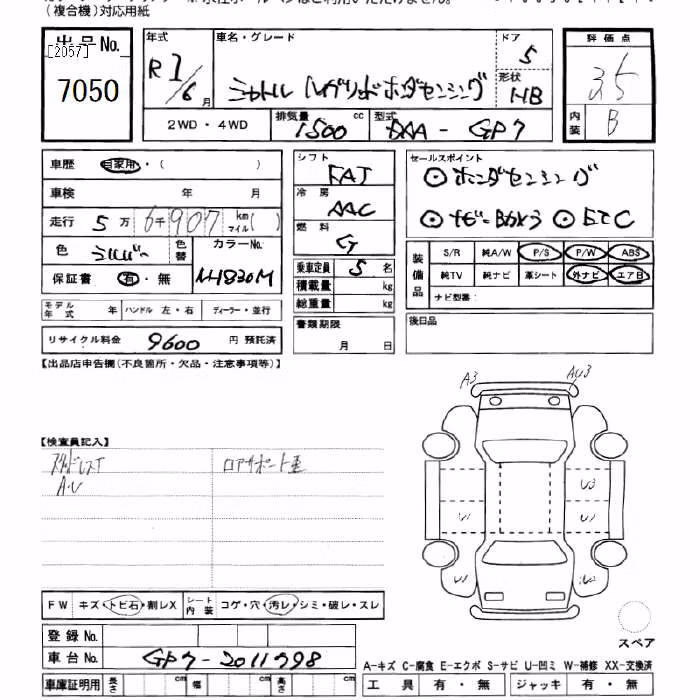 (複合機)対応用紙
出品No.
[2057]
7050
年式
R1/6月
車名・グレード
シャトル ハイブリッド ホンダセンシング
ドア
5
形状
HB
評価点
3.5
内装
B
2WD・4WD
排気量
1500 cc
型式
DAA-GP7
車歴 自家用・( )
車検 年 月
走行 5万6千907 km マイル( )
色 シルバー
色替
カラーNo.
NH830M
保証書 有・無
モデル年式 年 ハンドル 左・右 ディーラー・並行
リサイクル料金 9600 円 預託済
シフト
FAT
冷房
AAC
燃料
G
乗車定員 5 名
積載量 kg
総重量 kg
書類期限
月 日
セールスポイント
⊙ホンダセンシング
⊙ナビ・Bカメラ ⊙ETC
装備品
S/R 純A/W P/S P/W ABS
純TV 純ナビ 革シート 外ナビ エアB
ナビ型番:
後日品
【出品店申告欄(不良箇所・欠品・注意事項等)】
【検査員記入】
スタッドレスT
A・U
ロアサポート歪
A3
U3
U2
FW キズ・トビ石・割レX
シート内装 コゲ・穴・汚レ・シミ・破レ・スレ
登録No.
車台No. GP7-2011798
車庫証明用 長さ cm 幅 cm 高さ cm
スペア
A-キズ C-腐食 E-エクボ S-サビ U-凹ミ W-補修 XX-交換済
工具 有・無 ジャッキ 有・無